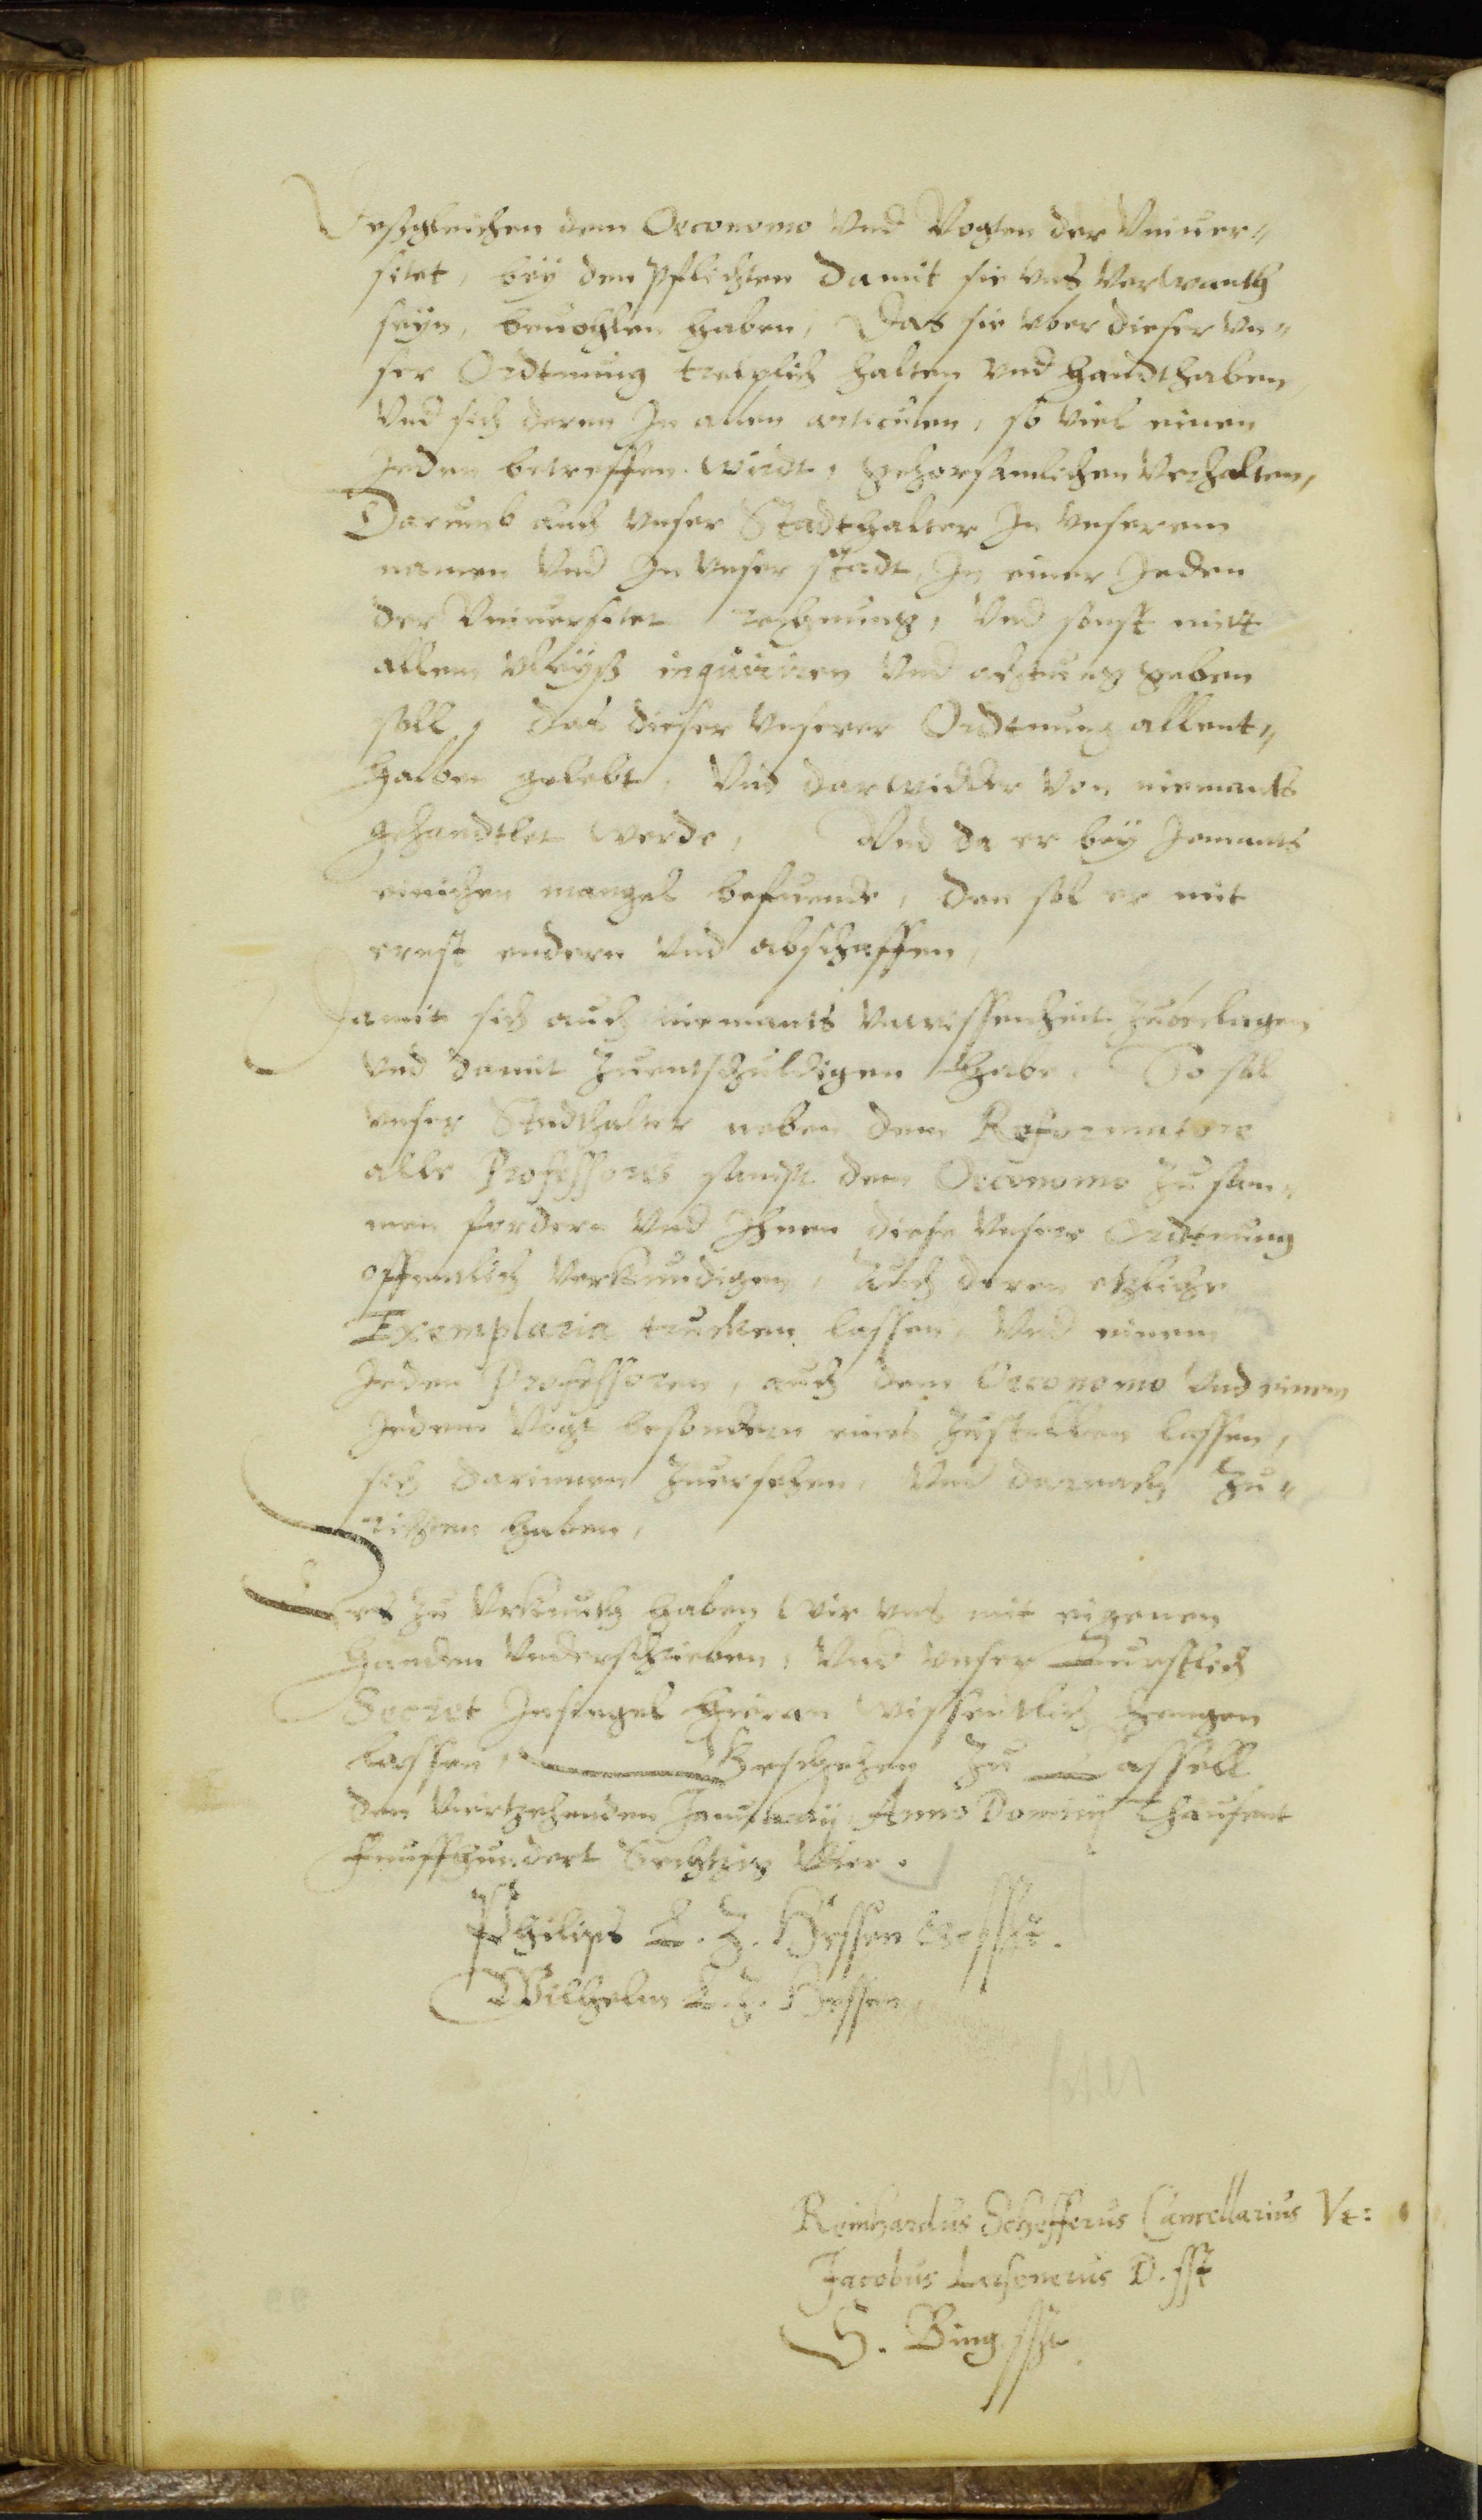 Deßgleichen dem Oeconomo Vnd Vogten der Vniuer-
sitet, bey den Pflichten damit sie vns Verwanth
seyn, beuohlen haben, Das sie vber dieser vn-
ser Ordtnung trewlich halten vnd handthaben,
Vnd sich deren In allen articulen, so viel einen
Jeden betreffen wirdt, gehorsamlichen Verhalten,
Darumb auch vnser Stadthalter In vnserem
namen Vnd In vnser stadt, In einer Jeden
der Vniuersitet rechnung, Vnd sonst mitt
allem vleyß inquiriren Vnd achtung geben
soll, das dieser vnserer Ordtnung allent-
halben gelebt, Vnd darwidder Von niemants
gehandtlet werde, Vnd da er bey Jemants
einichen mangel befuende, den sol er mit
ernst endern Vnd abschaffen,
Damit sich auch niemants vnwissenheit zubeclagen
Vnd damit zuentschuldigen habe. So soll
vnser Stadthalter neben dem Reformatore
alle Professores sampt dem Oeconomo zusam-
men fordern Vnd Ihnen diese Vnsere Ordtnung
offentlich Verkundigen, Auch deren etzliche
Exemplaria trucken lassen, Vnd einem
Jeden Professoren, auch dem Oeconomo Vnd einem
Jedem Vogt besondern eines zustellen lassen,
sich darinnen zuersehen, Vnd darnach zu-
richten haben,
Des zu Vrkunth haben Wir vns mit eigenen
handen Vnderschrieben, Vnd vnser Furstlich
Secret Insiegel hieran wissentlich hengen
lassen, Geschehen zu Cassell
den Viertzehenden Januarij Anno Dominj Thausent
Funffhundert Sechtzig Vier.
Philips L. Z. Hessen etc sst.
Wilhelm L. Z. Hessen,
Reinhardus Schefferus Cancellarius
Jacobus Lersenerus D. sst
S. Bing sst